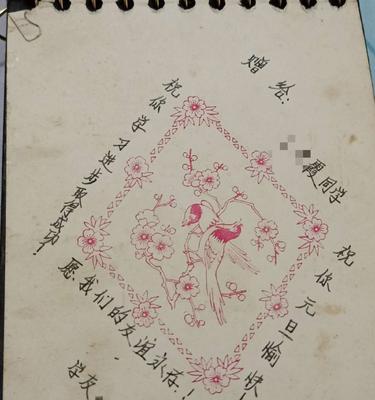 赠给:
霞同学
祝你元旦愉快!
祝你学习进步取得成功!
愿我们的友谊永存!
学友